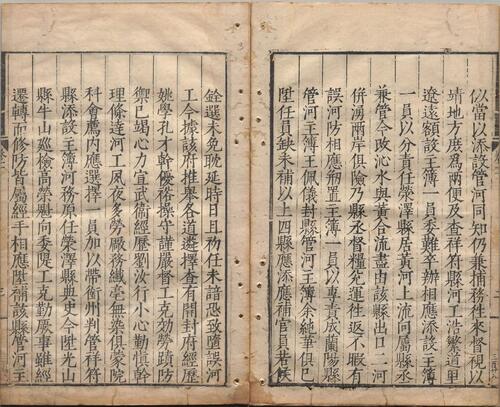 似當以添設管河同知仍兼捕務往來督視以
靖地方庶為兩便及查祥符縣河工浩繁道里
遼遠額設主簿一員委難卒辦相應添設主簿
一員以分責任榮澤縣居黃河上流向屬縣丞
兼管今改沁水與黃合流盡由該縣出口二河
併湧兩岸俱險乃縣丞督糧兌運往返不暇有
誤河防相應剏置主簿一員以專責成蘭陽縣
管河主簿王佩儀封縣管河主簿余純華俱已
陞任員缺未補以上四縣應添應補官員若候
銓選未免躭延時日且初任未諳恐致墮誤河
工今據該府推舉各道選擇查有開封府經歷
姚學孔才幹優裕操守謹嚴督工克効勞蹟防
禦已竭心力宣武衛經歷劉汝行小心勤慎幹
理條達河工夙夜多勞厰務纖毫無染俱蒙院
科會薦內應選擇一員加以帶銜州判管祥符
縣添設主簿河務原任榮澤縣典史今陞光山
縣牛山巡檢高榮慰向委隄工克勤厥事雖經
遷轉而修防皆屬經手相應陞補該縣管河主